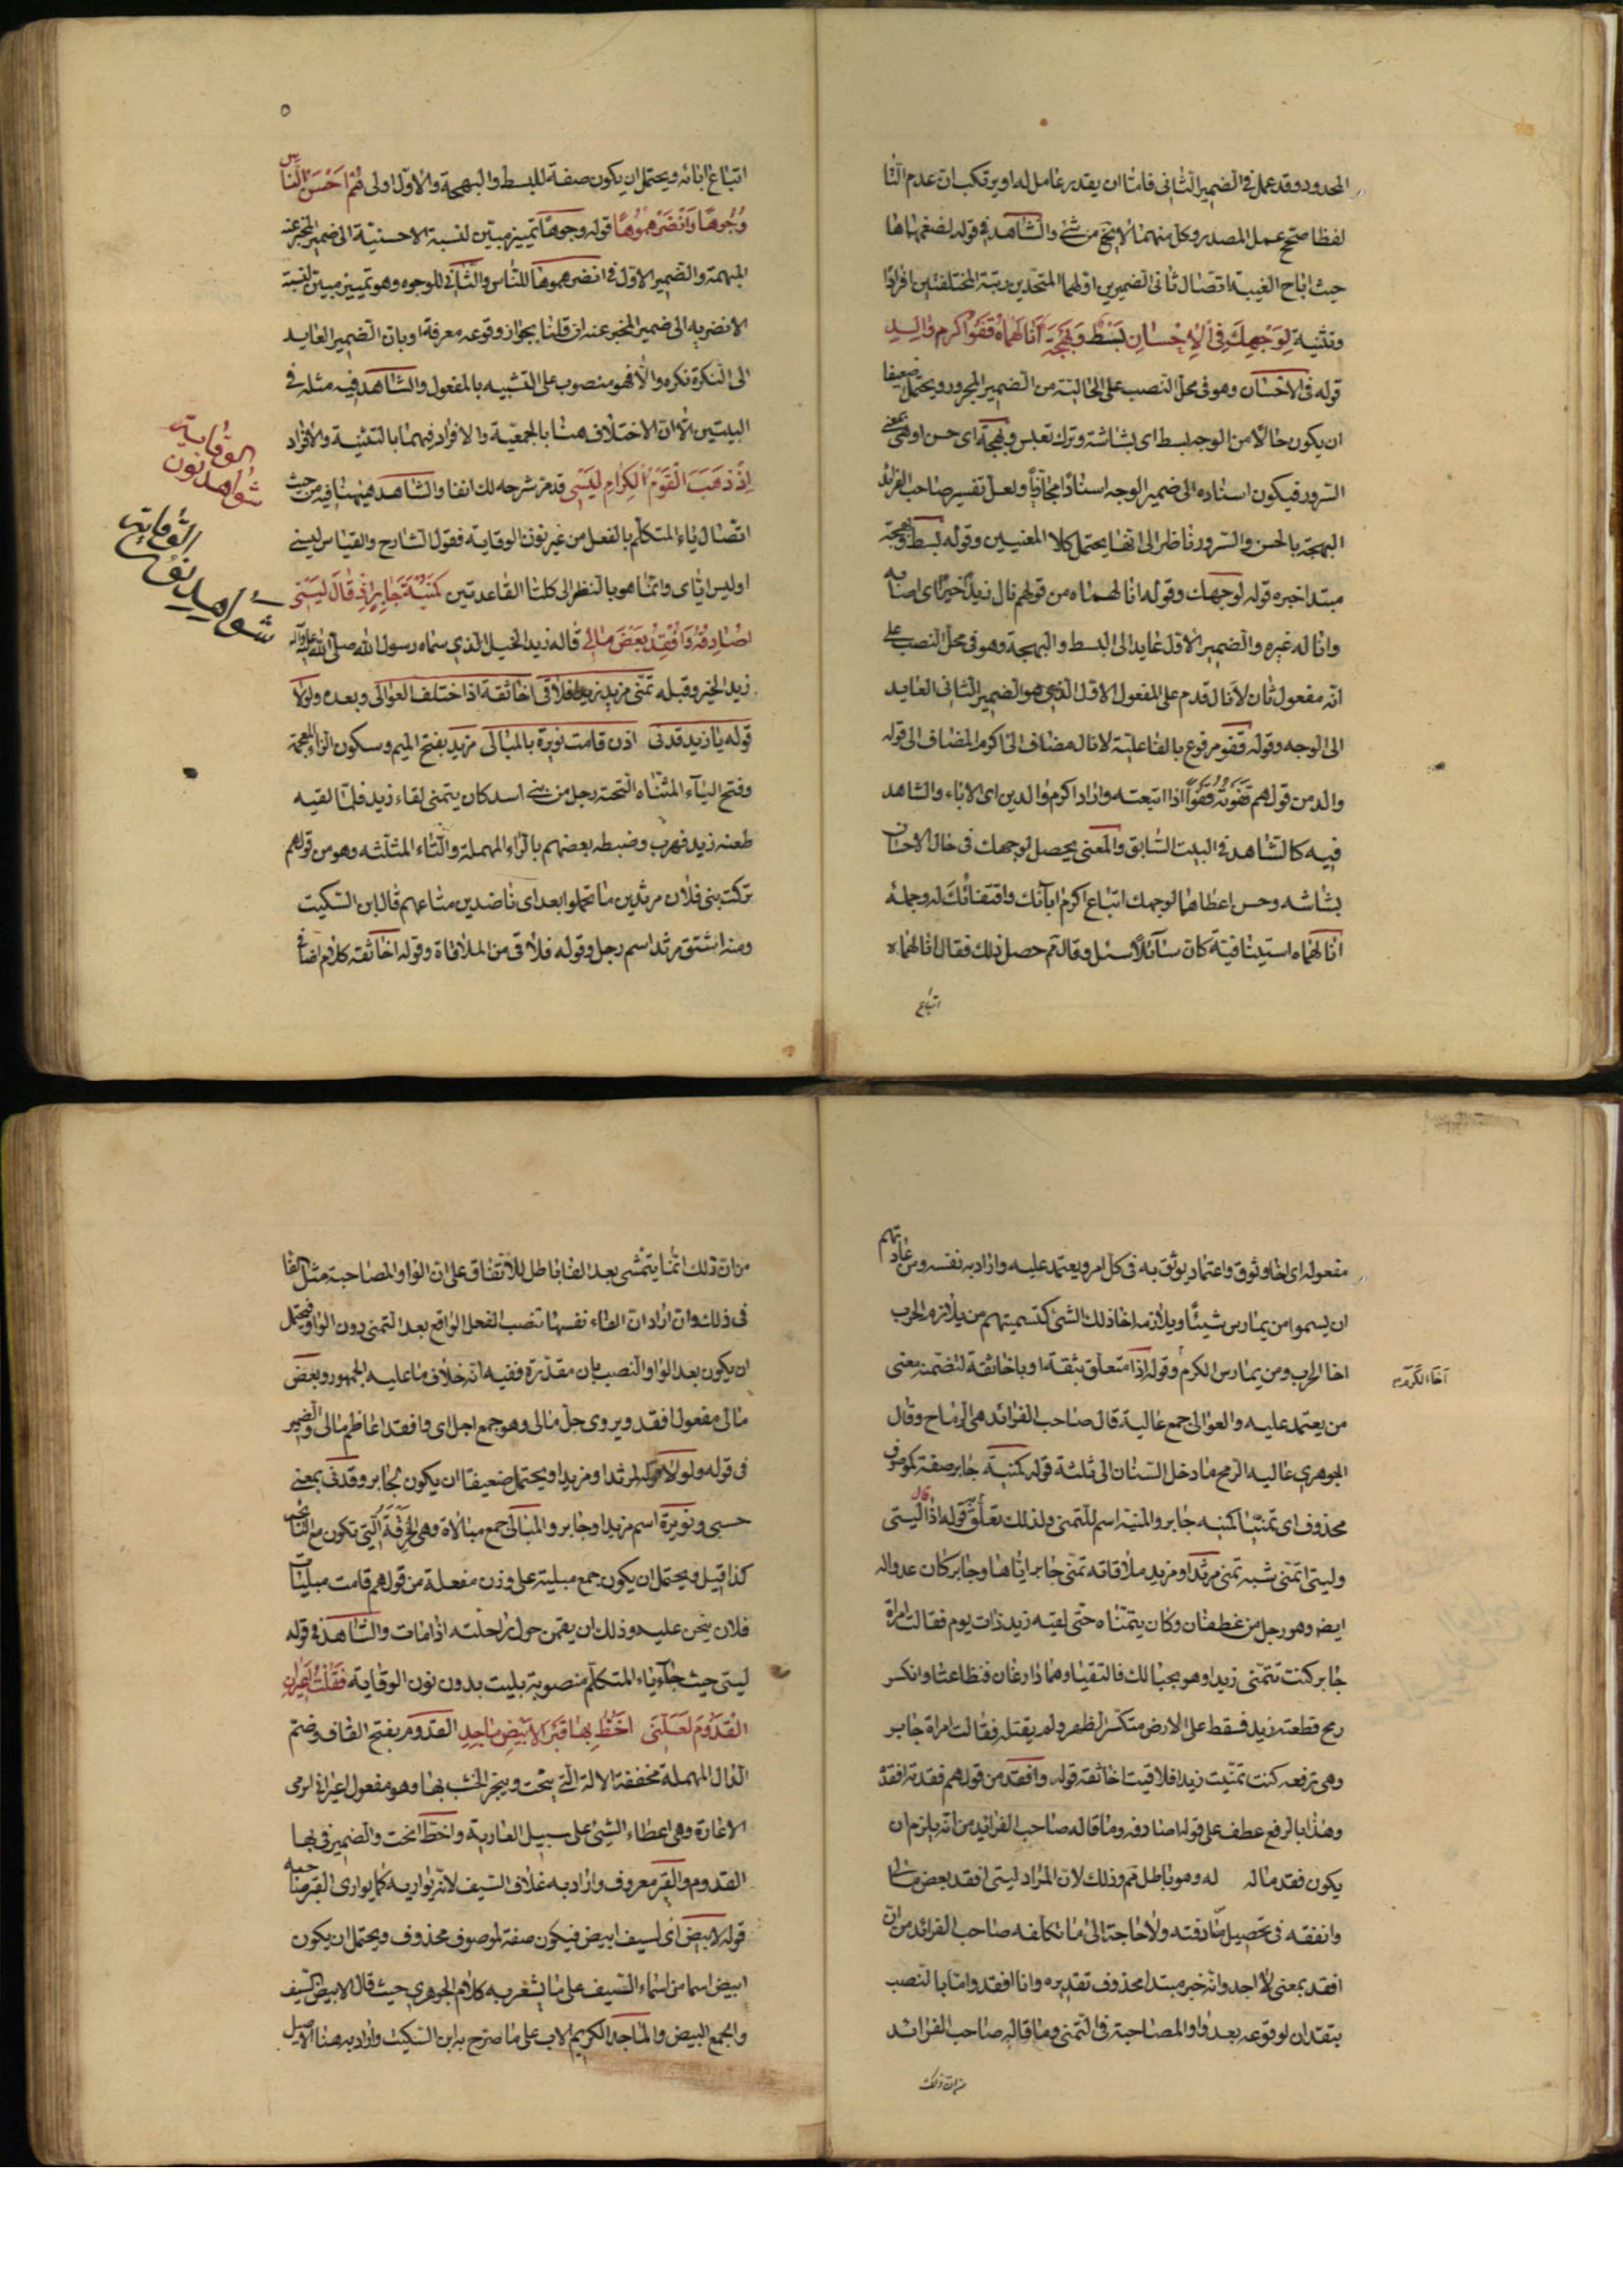 المحدود وقد عمل في الضمير الثاني فامّا ان يقدر عامل له او يرتكب ان عدم التا
لفظا صحح عمل المصدر وكل منهما لا يخ من شئ والشاهد في قوله لضغمهماها
حيث اباح الغيبة اتصال ثاني الضميرين اولهما المتحدين رتبة المختلفين افرادا
وتثنية لِوَجْهِكَ فِي الْاِحْسانِ بَسْطٌ وَبَهْجَةٌ اَنالَهُماهُ قَفْوُ اكرم والِدِ
قوله في الاحسان وهو في محل النصب على الحالية من الضمير المجرور ويحتمل ضعيفا
ان يكون حالا من الوجه بسط اى بشاشة وترك تعبس وبهجة اى حسن او هى بمعنى
السرور فيكون اسناده الى ضمير الوجه اسنادا مجازيا ولعل تفسير صاحب الفرائد
البهجة بالحسن والسرور ناظر الى انها يحتمل كلا المعنيين وقوله بسط وبهجة
مبتدا خبره قوله لوجهك وقوله انالهماه من قولهم نال زيد خيرا اى اصابه
واناله غيره والضمير الاول عايد الى البسط والبهجة وهو في محل النصب على
انه مفعول ثان لأنال قدم على المفعول الاول الذى هو الضمير الثانى العايد
الى الوجه وقوله قفو مرفوع بالفاعلية لانال مضاف الى اكرم المضاف الى قوله
والد من قولهم قفوته قفوا اذا اتبعته واراد اكرم والدين اى الاباء والشاهد
فيه كالشاهد في البيت السابق والمعنى يحصل لوجهك في حال الاحسان
بشاشه وحسن اعطاهما لوجهك اتباع اكرم ابآئك واقتفائك له وجملة
انالهماه استينافية كان سآئلا سئل وقال لم حصل ذلك فقال انالهماه
اتباع
٥
اتباع ابائه ويحتمل ان يكون صفة للبسط والبهجة والاول اولى هُمْ اَحْسَنُ النّاسِ
وُجُوهًا وَاَنْضَرُهُمُوها قوله وجوها تمييز مبين لنسبة الاحسنية الى ضمير المخبر عنه
المبهمة والضمير الاول في انضرهموها للناس والثانى للوجوه وهو تمييز مبين لنسبة
الانضرية الى ضمير المخبر عنه ان قلنا بجواز وقوعه معرفة او بان الضمير العايد
الى النكرة نكره والا فهو منصوب على التشبيه بالمفعول والشاهد فيه مثله في
البيتين الا ان الاختلاف هنا بالجمعية والافراد فيهما بالتثنية والافراد
اِذْ ذَهَبَ الْقَوْمُ الْكِرامِ لَيْسى قد مر شرحه لك انفا والشاهد هيهنا فيه من حيث
اتصال ياء المتكلم بالفعل من غير نون الوقاية فقول الشارح والقياس ليسنى
او ليس اياى وانما هو بالنظر الى كلتا القاعدتين كَمُنْيَةِ جابِرٍ اِذْ قالَ لَيْتى
اُصادِفُهُ وَاُفْقِدُ بَعْضَ مالى قاله زيد الخيل الذى سماه رسول الله صلى الله عليه وآله
زيد الخير وقبله تمنى مزيد زيدا فلاقى اخا ثقة اذا اختلف العوالى وبعده ولولا
قوله يا زيد قدنى اذن قامت نويرة بالمبالى مزيد بفتح الميم وسكون الزاء المعجمة
وفتح الياء المثناه التحتيه رجل من بنى اسد كان يتمنى لقاء زيد فلما لقيه
طعنه زيد فهرب وضبطه بعضهم بالراء المهملة والثاء المثلثه وهو من قولهم
تركت بنى فلان مرثدين ما تحملوا بعد اى ناضدين متاعهم قال ابن السكيت
ومنه اشتق مرثد اسم رجل وقوله فلاقى من الملاقاة وقوله اخا ثقه كلام اضافى
الوقاية
شواهد نون
الوقاية
شواهد نون
مفعوله اى اخا وثوق واعتماد يوثق به في كل امر ويعتمد عليه واراد به نفسه ومن عادتهم
ان يسموا من يمارس شيئا ويلازمه اخا ذلك الشئ كتسميتهم من يلازم الحرب
اخا الحرب ومن يمارس الكرم وقوله اذا متعلق بثقة او باخا ثقة لتضمنه معنى
من يعتمد عليه والعوالى جمع عالية قال صاحب الفرائد هى الرماح وقال
الجوهرى عالية الرمح ما دخل السنان الى ثلثة قوله كمنية جابر صفة لموصوف
محذوف اى تمنيا كمنيه جابر والمنية اسم للتمنى ولذلك تعلق به قوله اذ قال ليتى
وليتى اتمنى شبه تمنى مرثد او مزيد ملاقاته تمنى جابر اياها وجابر كان عدوا له
ايضا وهو رجل من غطفان وكان يتمناه حتى لقيه زيد ذات يوم فقالت امراة
جابر كنت تتمنى زيدا وهو بحيالك فالتقيا وهما دارعان فتطاعنا وانكسر
رمح قطعته زيد فسقط على الارض متكسر الظهر ولم يقتله فقالت امراة جابر
وهى ترفعه كنت تمنيت زيدا فلاقيت اخا ثقة قوله وافقد من قولهم فقدته افقده
وهذا بالرفع عطف على قوله اصادفه وما قاله صاحب الفرائد من انه يلزم ان
يكون فقد ماله له وهو باطل قم وذلك لان المراد ليتى افقد بعض مالى
وانفقه في تحصيل مصادفته ولا حاجة الى ما تكلفه صاحب الفرائد من ان
افقد بمعنى لا اجد وانه خبر مبتدا محذوف تقديره وانا افقد واما بالنصب
بتقدير ان لوقوعه بعد واو المصاحبة في التمنى وما قاله صاحب الفرائد
من ان ذلك
اخا الكرم
من ان ذلك انما يتمشى بعد الفا باطل للاتفاق على ان الواو المصاحبة مثل الفا
في ذلك وان اراد ان الفاء نفسها تنصب الفعل الواقع بعد التمنى دون الواو فيحتمل
ان يكون بعد الواو النصب بان مقدرة ففيه انه خلاف ما عليه الجمهور وبعض
مالى مفعول افقد ويروى جل مالى وهو جمع اجل اى وافقد اعاظم مالى والضمير
في قوله ولولا قوله لمرثد او مزيد او يحتمل ضعيفا ان يكون لجابر وقدنى بمعنى
حسبى ونويرة اسم مزيد او جابر والمبالى جمع مبلاة وهى الخرقة التى تكون مع النائحه
كذا قيل ويحتمل ان يكون جمع مبلية على وزن مفعلة من قولهم قامت مبليات
فلان ينحن عليه وذلك ان يقمن حول راحلته اذا مات والشاهد في قوله
ليتى حيث جاء ياء المتكلم منصوبة بليت بدون نون الوقاية فَقُلْتُ اَعِيرانِى
الْقَدُومَ لَعَلَّنى اَخُطُّ بِها قَبْرًا لِاَبْيَضَ ماجِدِ القدوم بفتح القاف وضم
الدال المهملة مخففة الالة التى ينحت وينجر الخشب بها وهو مفعول اعيرانى من
الاعارة وهى اعطاء الشئ على سبيل العارية واخط انحت والضمير في بها
القدوم والقبر معروف واراد به غلاف السيف لانه يواريه كما يوارى القبر صاحبه
قوله لابيض اى لسيف ابيض فيكون صفة لموصوف محذوف ويحتمل ان يكون
ابيض اسما من اسماء السيف على ما يشعر به كلام الجوهرى حيث قال الابيض السيف
والجمع البيض والماجد الكريم الاب على ما صرح به ابن السكيت واراد به هنا الاصيل